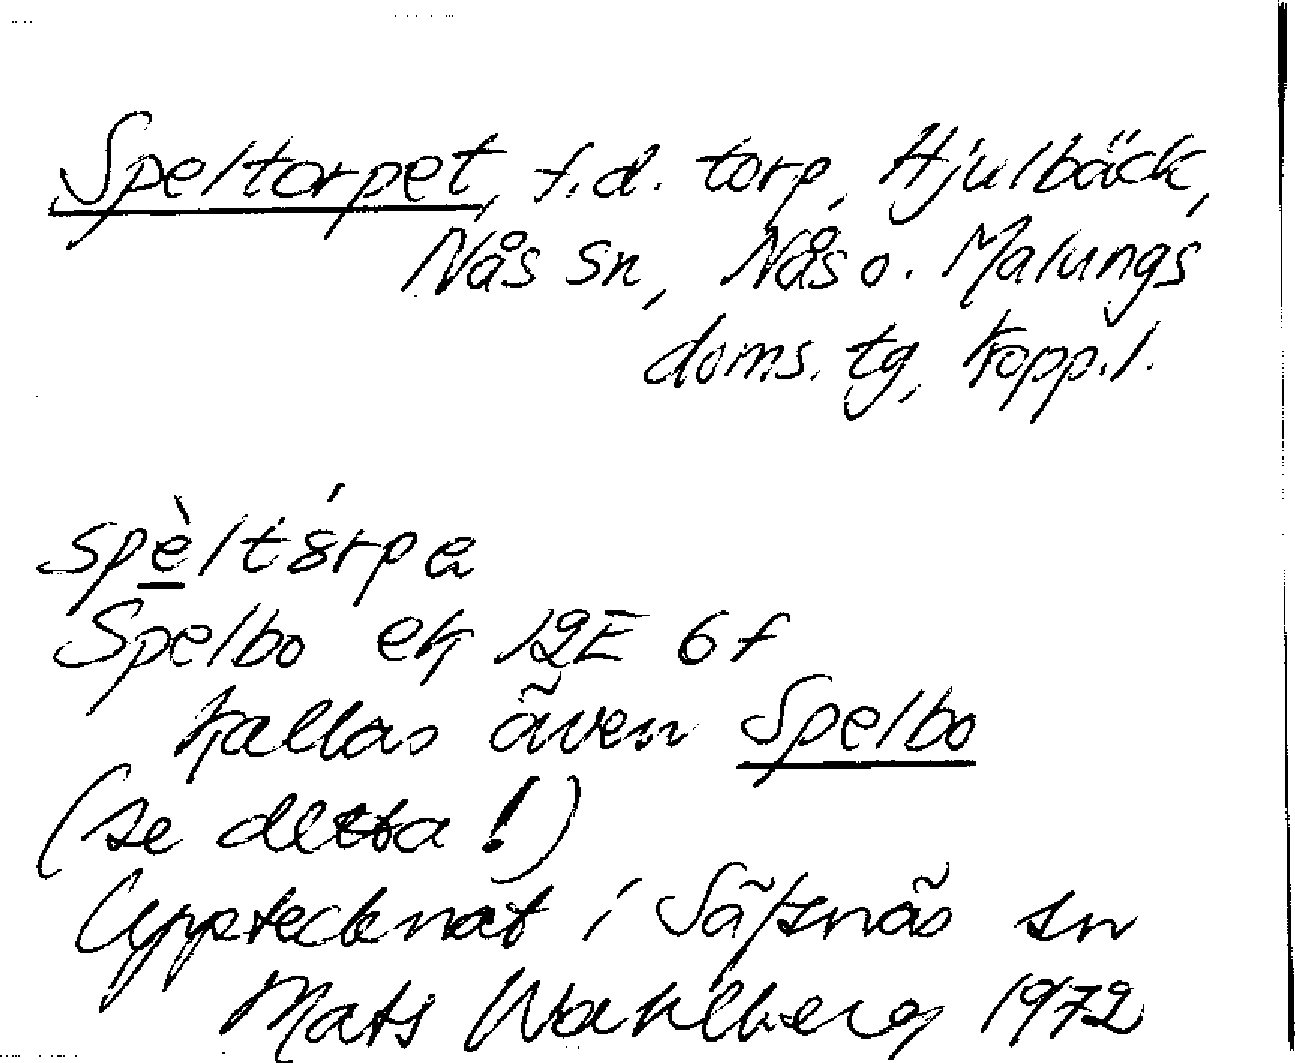 Speltorpet, f.d. torp, Hjulbäck,
Nås sn, Nås o. Malungs
doms. tg, Kopp. l.
spèltórpe
Spelbo ek 12E 6f
kallas även Spelbo
(se detta!)
Upptecknat i Säfsnäs sn
Mats Wahlberg 1972